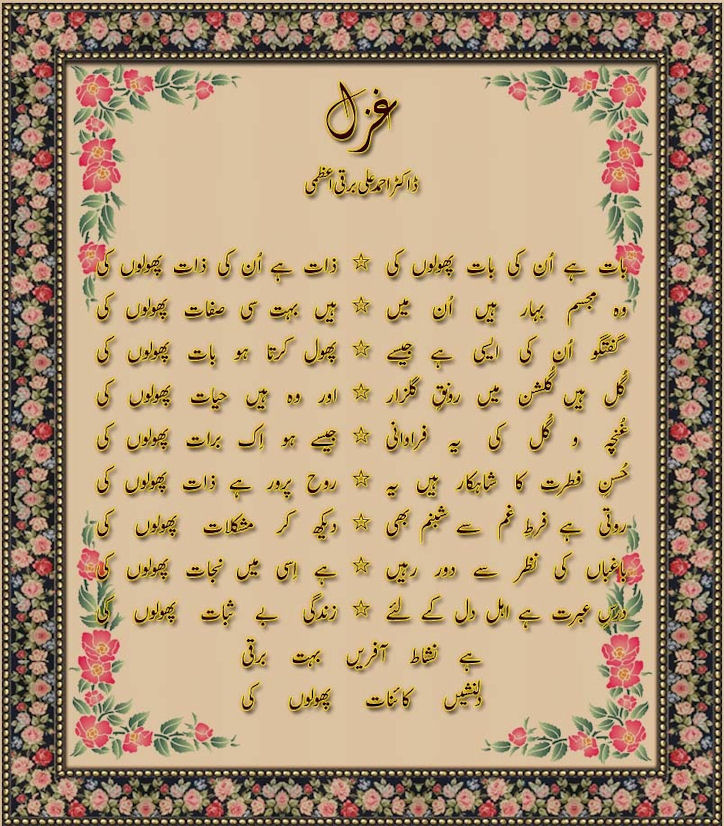 غزل
ڈاکٹر احمد علی برقی اعظمی
بات ہے اُن کی بات پھولوں کی ☆ ذات ہے اُن کی ذات پھولوں کی
وہ مجسم بہار ہیں اُن میں ☆ ہیں بہت سی صفات پھولوں کی
گفتگو اُن کی ایسی ہے جیسے ☆ پھول کرتا ہو بات پھولوں کی
گُل ہیں گلشن میں رونقِ گلزار ☆ اور وہ ہیں حیات پھولوں کی
غُنچہ و گُل کی یہ فراوانی ☆ جیسے ہو اِک برات پھولوں کی
حُسنِ فطرت کا شاہکار ہیں یہ ☆ روح پرور ہے ذات پھولوں کی
روتی ہے فرطِ غم سے شبنم بھی ☆ دیکھ کر مشکلات پھولوں کی
باغباں کی نظر سے دور رہیں ☆ ہے اِسی میں نجات پھولوں کی
درسِ عبرت ہے اہل دل کے لئے ☆ زندگی بے ثبات پھولوں کی
ہے نشاط آفریں بہت برقی
دلنشیں کائنات پھولوں کی